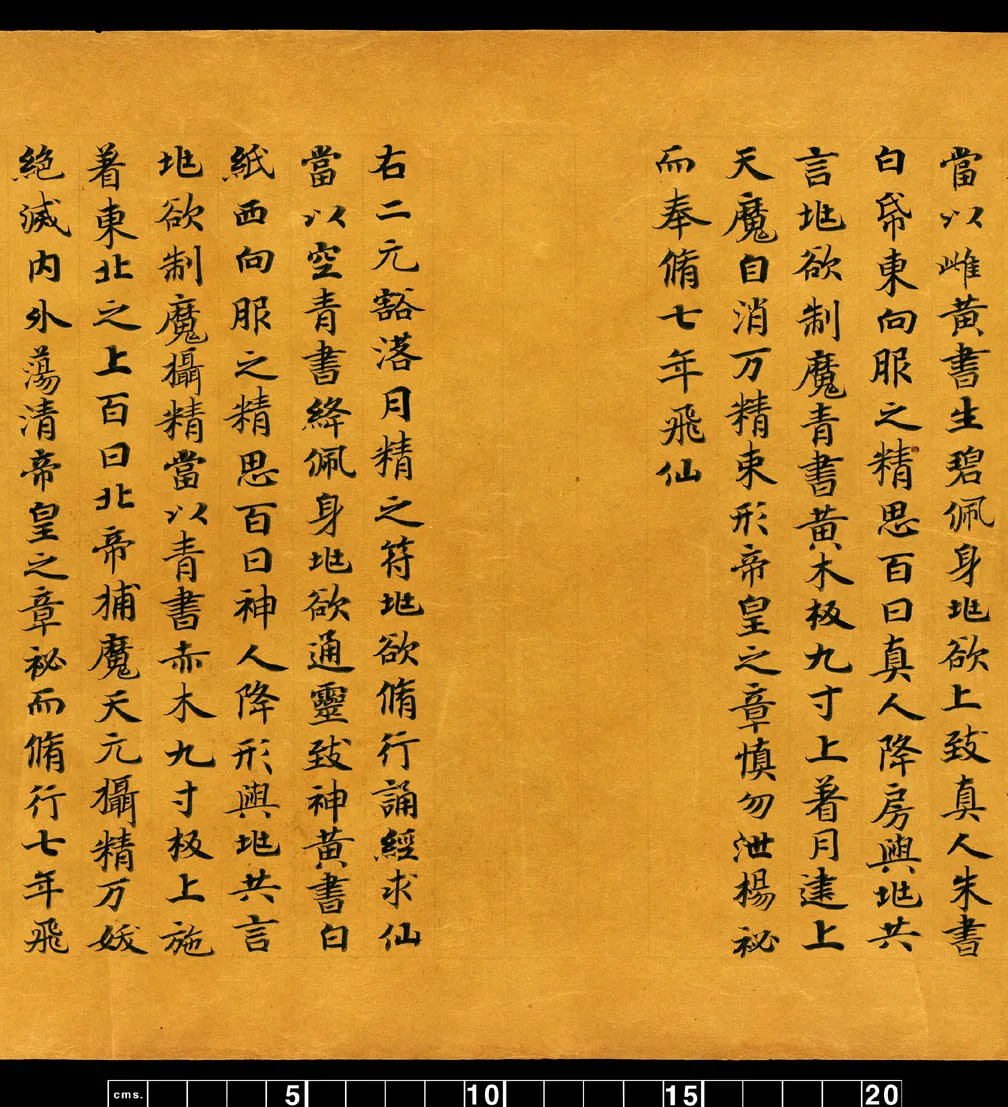 當以雌黃書生碧佩身兆欲上致真人朱書
白帋東向服之精思百日真人降房與兆共
言兆欲制魔青書黃木板九寸上著月建上
天魔自消万精束形帝皇之章慎勿泄楊祕
而奉脩七年飛仙
右二元豁落月精之符兆欲脩行誦經求仙
當以空青書絳佩身兆欲通靈致神黃書白
紙西向服之精思百日神人降形與兆共言
兆欲制魔攝精當以青書赤木九寸板上施
著東北之上百日北帝捕魔天元攝精万妖
絕滅内外蕩清帝皇之章祕而脩行七年飛
cms. 5 10 15 20